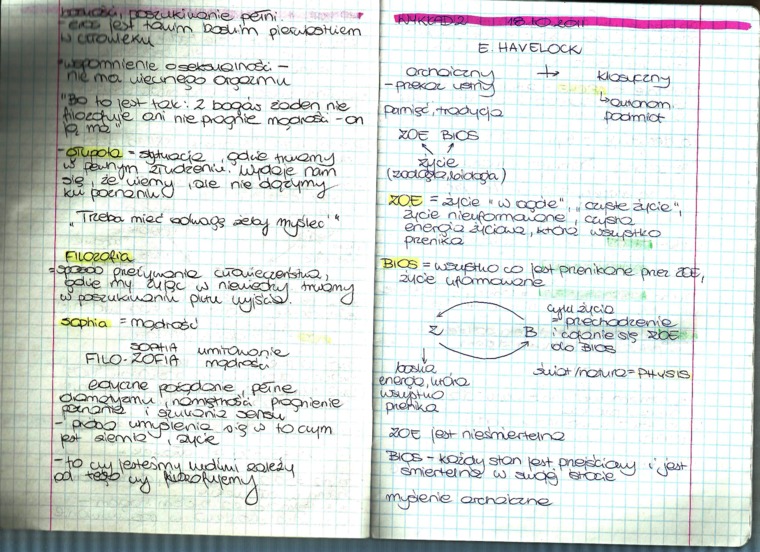 boskości, poszukiwanie pełni.
- eros jest takim boskim pierwiastkiem
w człowieku
"wspomnienie o seksualności –
nie ma wiecznego orgazmu
"Bo to jest tak: z bogów żaden nie
filozofuje ani nie pragnie mądrości - on
ją ma"
- głupota = sytuacja, gdzie trwamy
w pewnym złudzeniu. Wydaje nam
się, że wiemy, ale nie dążymy
ku poznaniu
"Trzeba mieć odwagę żeby myśleć"
FILOZOFIA
= sposób przeżywania człowieczeństwa,
gdzie my żyjąc w niewiedzy trwamy
w poszukiwaniu wyjścia.
sophia = mądrość
SOPHIA umiłowanie
FILO-ZOFIA mądrości
erotyczne pożądanie, pełne
dramatyzmu, namiętności pragnienie
poznania i szukania sensu
- próba umyślenia się w to czym
jest ziemia, życie
- to czy jesteśmy ludźmi zależy
od tego czy filozofujemy
WYKŁAD 2 18.10.2011
E. HAVELOCK
archaiczny → klasyczny
- przekaz ustny
autonom.
podmiot
pamięć, tradycja
ZOE BIOS
życie
(zoologia, biologia)
ZOE = życie "w ogóle", "czyste życie",
życie nieuformowane, czysta
energia życiowa, która wszystko
przenika
BIOS = wszystko co jest przenikane przez ZOE,
życie uformowane
Z B
cykl życia
= przechodzenie
i odanie się ZOE
do BIOS
boska
energia, która
wszystko
przenika
świat/natura = PHYSIS
ZOE jest nieśmiertelna
BIOS - każdy stan jest przejściowy i jest
śmiertelny w swojej istocie
myślenie archaiczne